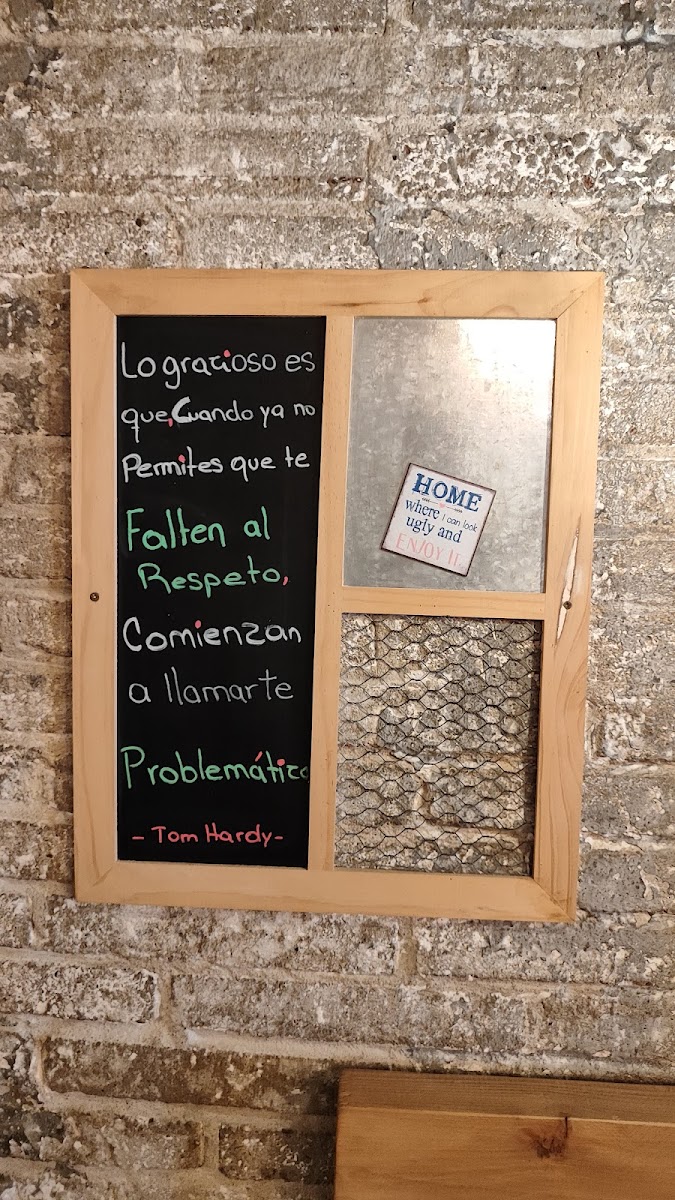 Lo gracioso es
que, Cuando ya no
Permites que te
Falten al
Respeto,
Comienzan
a llamarte
Problemático
- Tom Hardy -
HOME
where I can look
ugly and
ENJOY IT